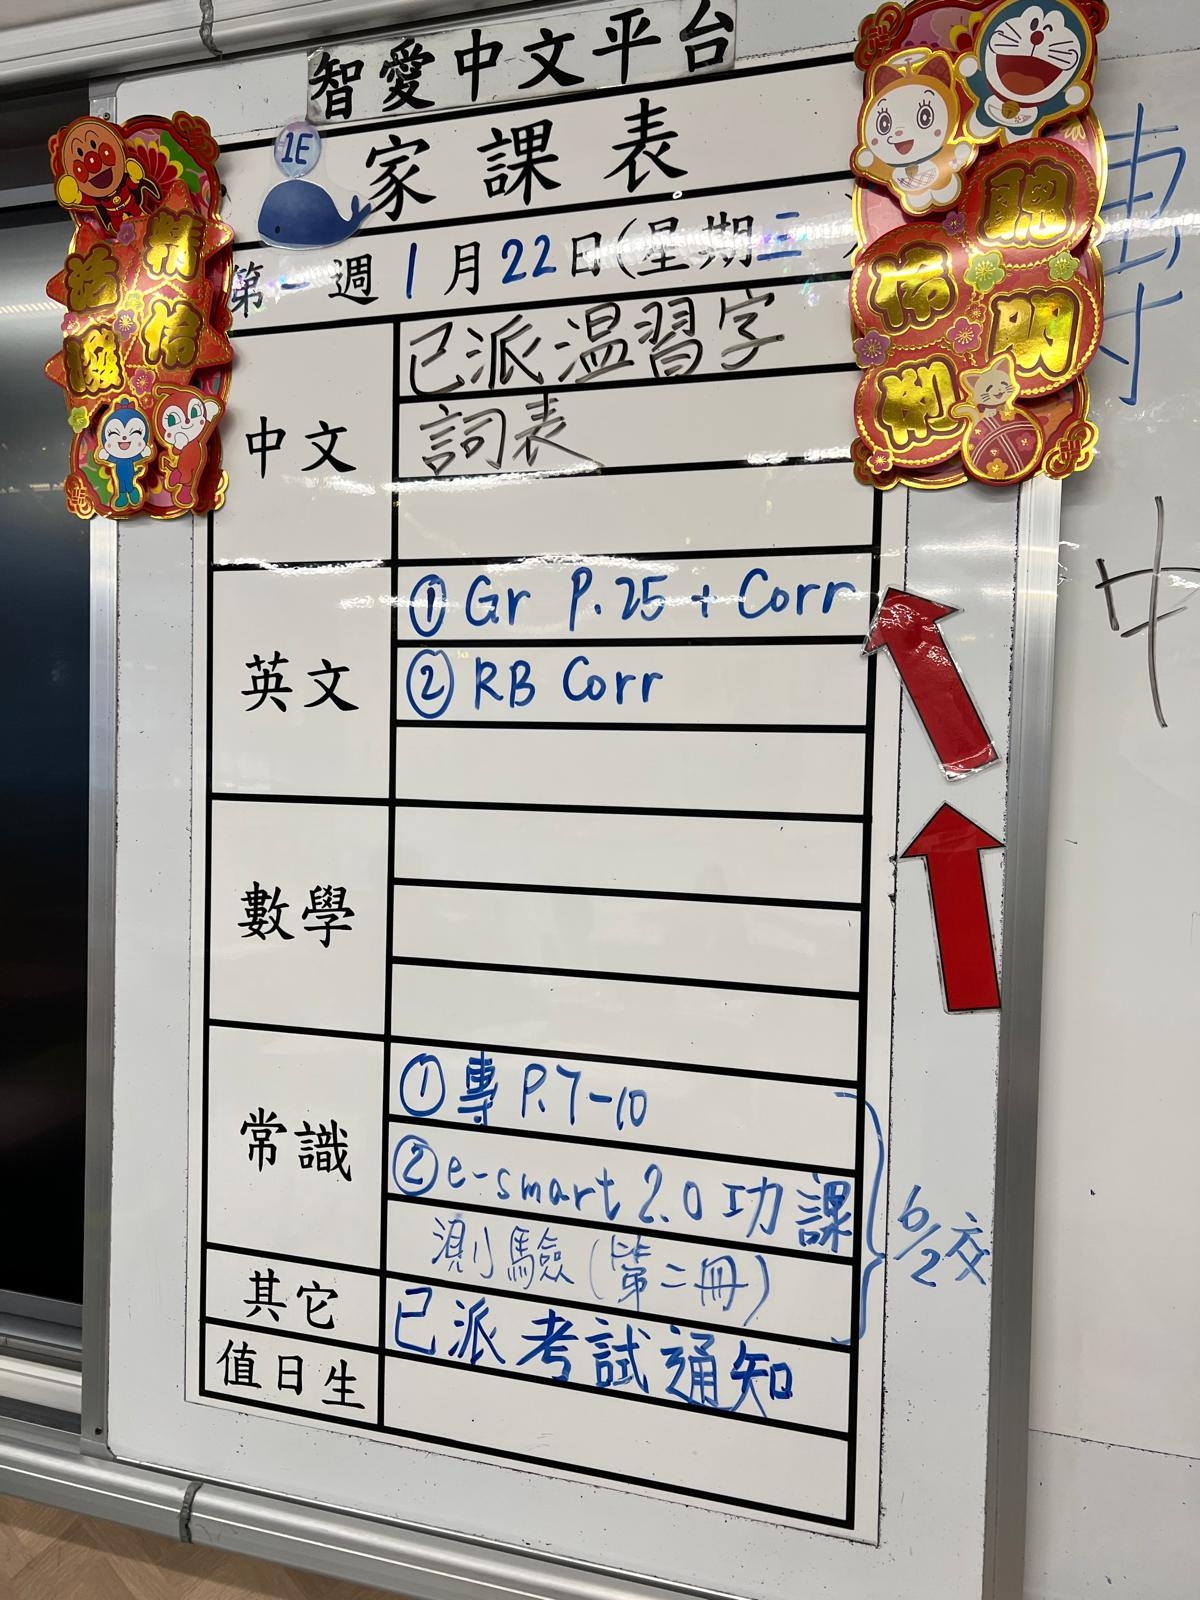 智愛中文平台
1E
家課表
第一週1月22日(星期三)
中文
已派温習字
詞表
英文
① Gr P.25 + Corr
② RB Corr
數學
常識
① 專 P.7-10
② e-smart 2.0 功課
測驗(第二冊)
6/2交
其它
已派考試通知
值日生
精恰
活潑
聰明
伶俐
中